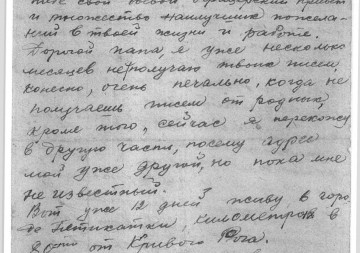 тебе свой боевой офицерский привет
и множество наилучших пожела-
ний в твоей жизни и работе.
Дорогой папа, я уже несколько
месяцев неполучаю твоих писем
конечно, очень печально, когда не
получаешь писем от родных,
кроме того, сейчас я перехожу
в другую часть, посему адрес
мой уже другой, но пока мне
не известный.
Вот уже 12 дней живу в горо-
де Пятихатки, километрах в
80 от Кривого Рога.